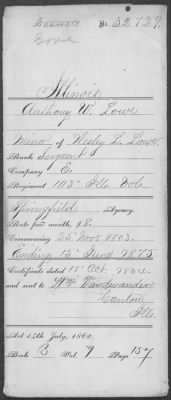 No. 32.729.
Illinois
Anthony W. Lowe
Minor of Wesley L. Lowe
Rank Sergeant
Company E.
Regiment 103" Ills Vols.
Springfield Agency.
Rate per month, $8.
Commencing 25" Nov. 1863.
Ending 15" June 1875
Certificate dated 15" Oct. 1864
and sent to Wm.
Canton
Ills.
Act 14th July, 1862.
Book B Vol. 7 Page 157